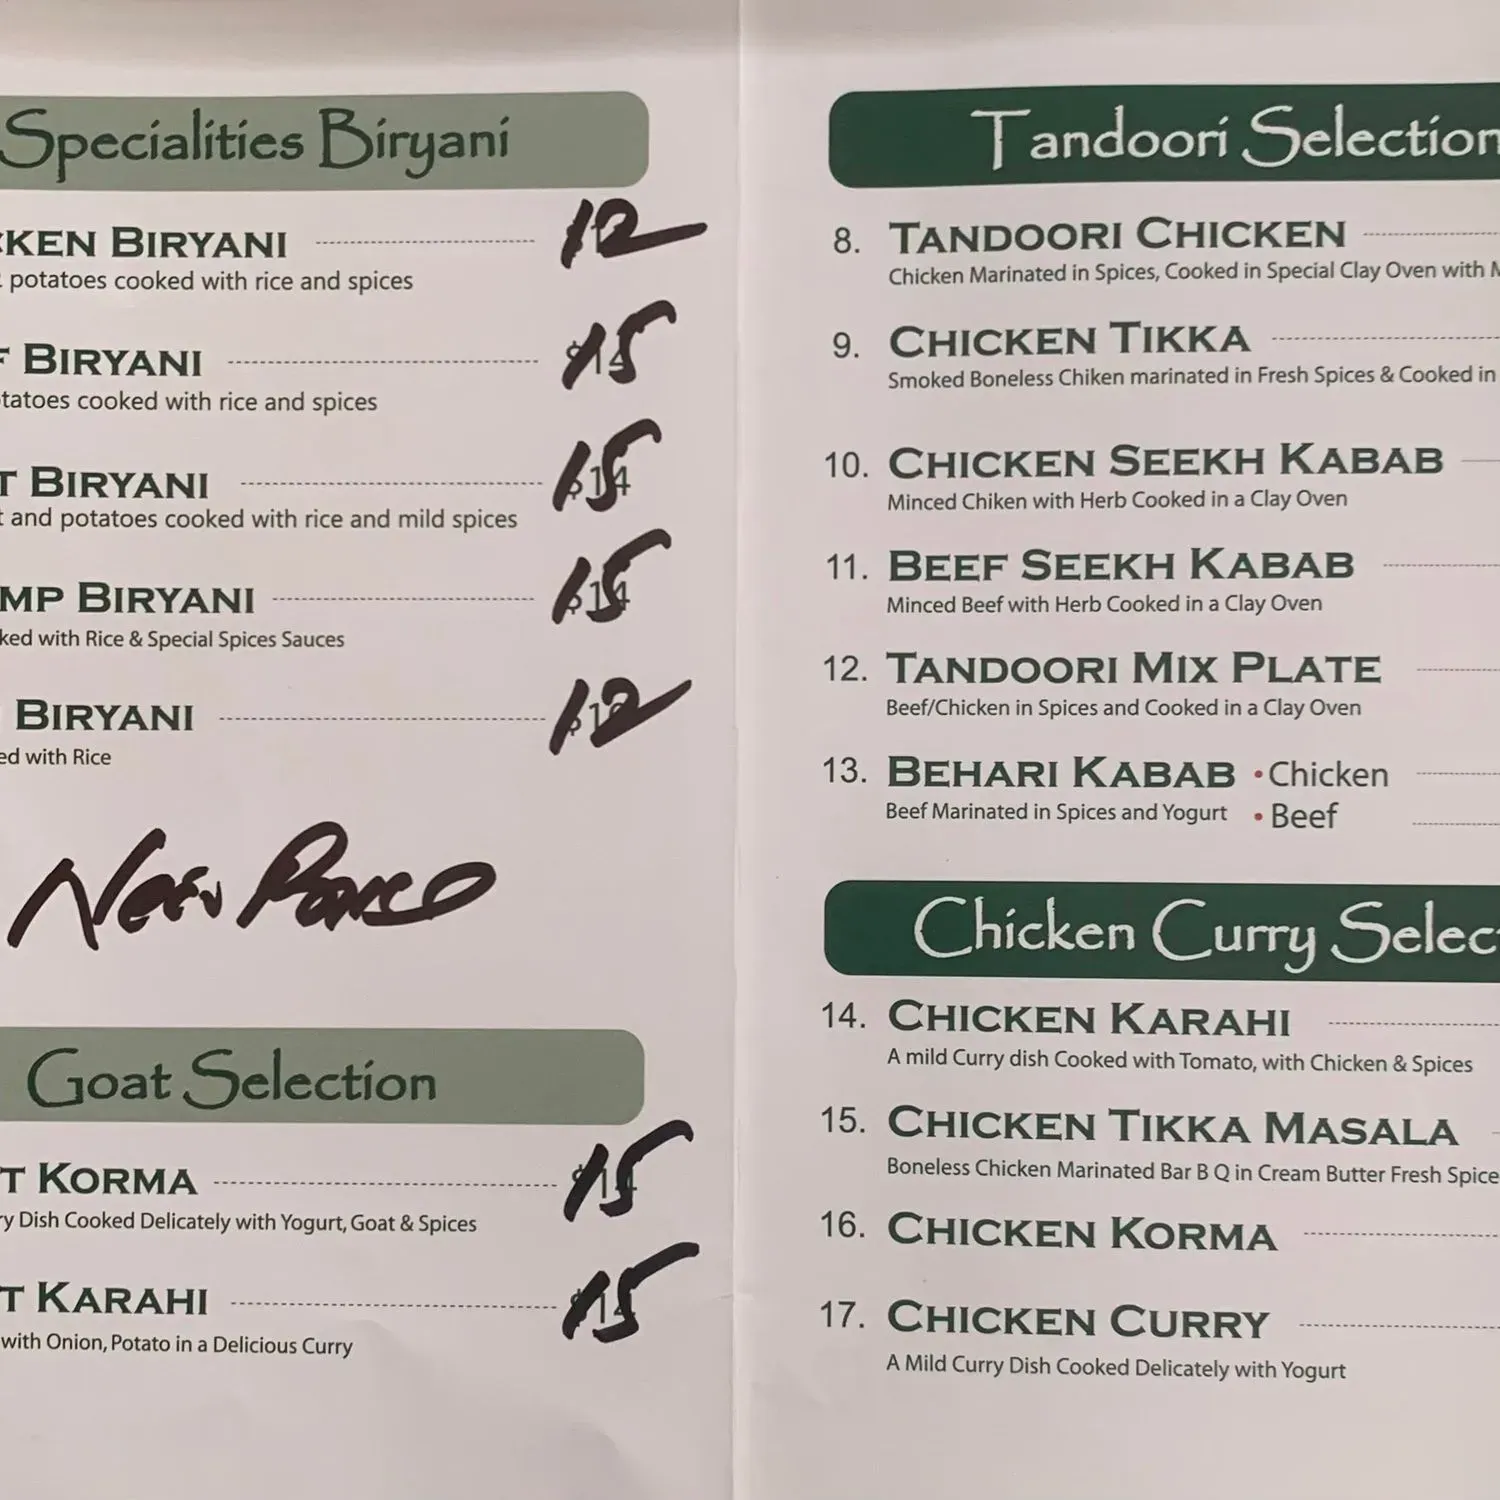 Specialities Biryani
CKEN BIRYANI 12
potatoes cooked with rice and spices
F BIRYANI 15
tatoes cooked with rice and spices
T BIRYANI 15
t and potatoes cooked with rice and mild spices
MP BIRYANI 15
ked with Rice & Special Spices Sauces
BIRYANI 12
ed with Rice
New
Goat Selection
T KORMA 15
ry Dish Cooked Delicately with Yogurt, Goat & Spices
T KARAHI 15
with Onion, Potato in a Delicious Curry
Tandoori Selection
8. TANDOORI CHICKEN
Chicken Marinated in Spices, Cooked in Special Clay Oven with M
9. CHICKEN TIKKA
Smoked Boneless Chiken marinated in Fresh Spices & Cooked in
10. CHICKEN SEEKH KABAB
Minced Chiken with Herb Cooked in a Clay Oven
11. BEEF SEEKH KABAB
Minced Beef with Herb Cooked in a Clay Oven
12. TANDOORI MIX PLATE
Beef/Chicken in Spices and Cooked in a Clay Oven
13. BEHARI KABAB • Chicken
Beef Marinated in Spices and Yogurt • Beef
Chicken Curry Selec
14. CHICKEN KARAHI
A mild Curry dish Cooked with Tomato, with Chicken & Spices
15. CHICKEN TIKKA MASALA
Boneless Chicken Marinated Bar B Q in Cream Butter Fresh Spice
16. CHICKEN KORMA
17. CHICKEN CURRY
A Mild Curry Dish Cooked Delicately with Yogurt